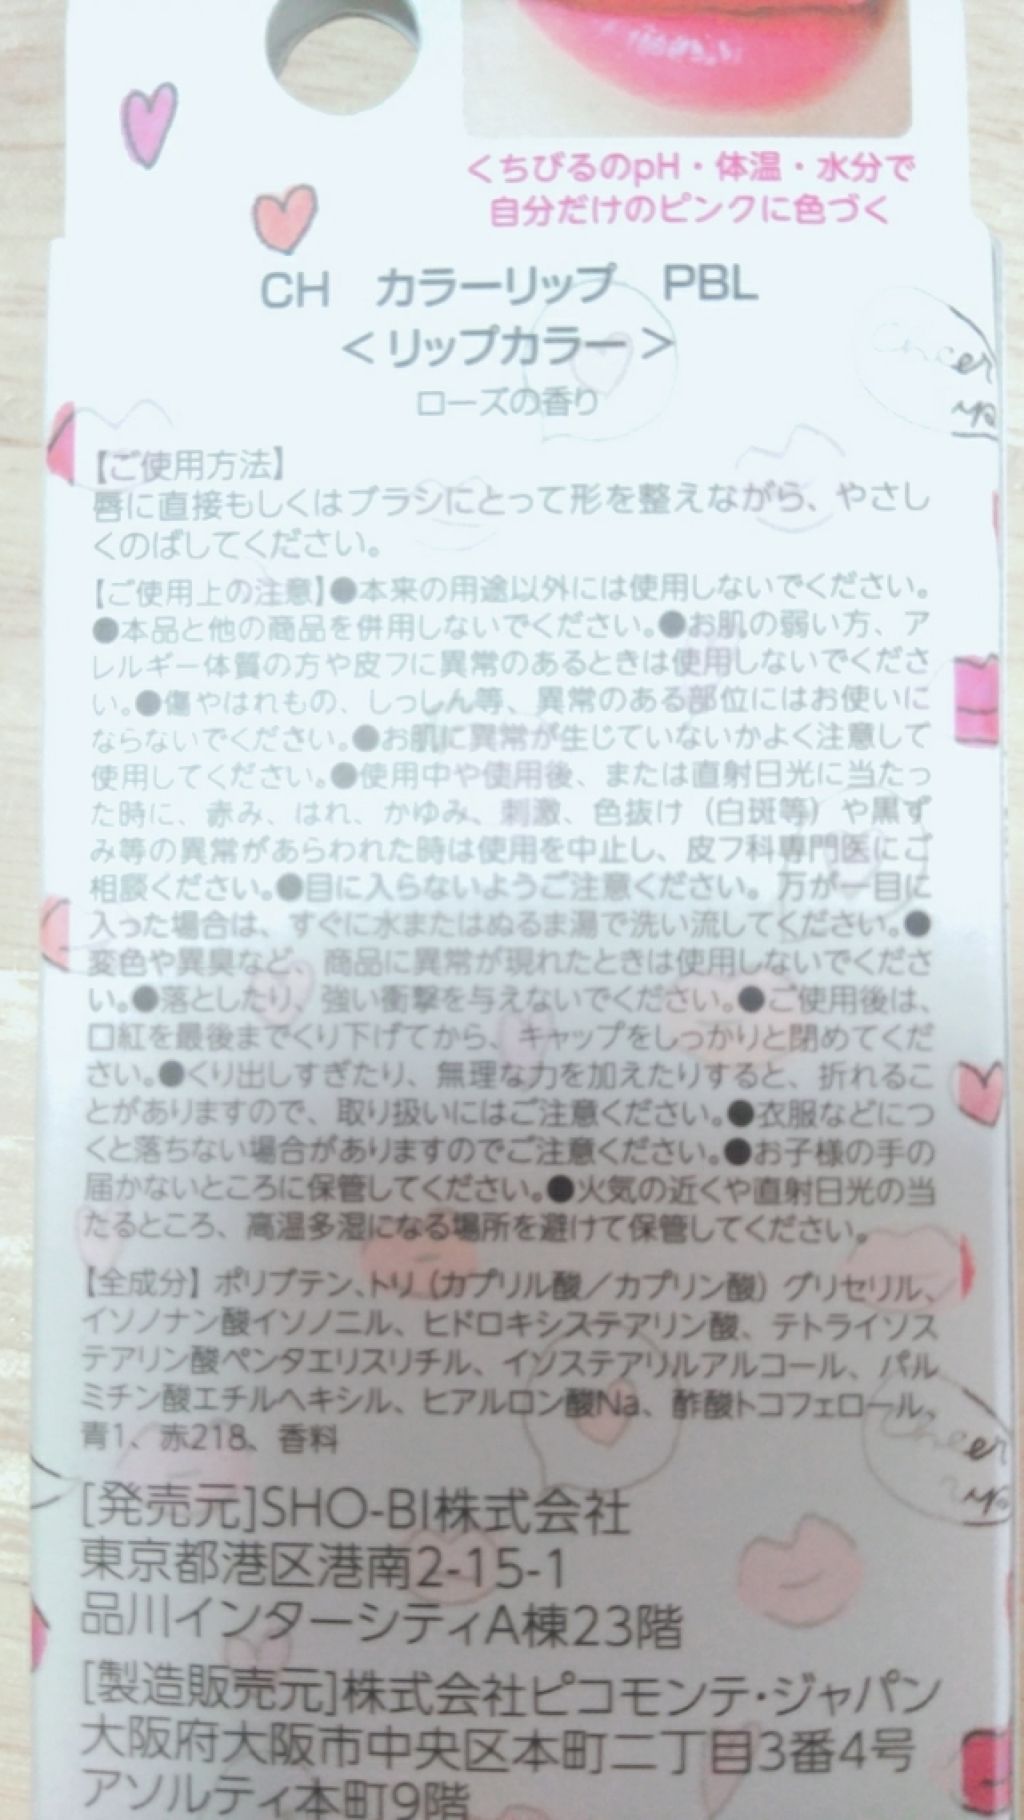 くちびるのpH・体温・水分で
自分だけのピンクに色づく
CH カラーリップ PBL
＜リップカラー＞
ローズの香り
【ご使用方法】
唇に直接もしくはブラシにとって形を整えながら、やさし
くのばしてください。
【ご使用上の注意】●本来の用途以外には使用しないでください。
●本品と他の商品を併用しないでください。●お肌の弱い方、ア
レルギー体質の方や皮フに異常のあるときは使用しないでくださ
い。●傷やはれもの、しっしん等、異常のある部位にはお使いに
ならないでください。●お肌に異常が生じていないかよく注意して
使用してください。●使用中や使用後、または直射日光に当たっ
た時に、赤み、はれ、かゆみ、刺激、色抜け（白斑等）や黒ず
み等の異常があらわれた時は使用を中止し、皮フ科専門医にご
相談ください。●目に入らないようご注意ください。万が一目に
入った場合は、すぐに水またはぬるま湯で洗い流してください。●
変色や異臭など、商品に異常が現れたときは使用しないでくださ
い。●落としたり、強い衝撃を与えないでください。●ご使用後は、
口紅を最後までくり下げてから、キャップをしっかりと閉めてくだ
さい。●くり出しすぎたり、無理な力を加えたりすると、折れるこ
とがありますので、取り扱いにはご注意ください。●衣服などにつ
くと落ちない場合がありますのでご注意ください。●お子様の手の
届かないところに保管してください。●火気の近くや直射日光の当
たるところ、高温多湿になる場所を避けて保管してください。
【全成分】ポリブテン、トリ（カプリル酸／カプリン酸）グリセリル、
イソノナン酸イソノニル、ヒドロキシステアリン酸、テトライソス
テアリン酸ペンタエリスリチル、イソステアリルアルコール、パル
ミチン酸エチルヘキシル、ヒアルロン酸Na、酢酸トコフェロール、
青1、赤218、香料
[発売元]SHO-BI株式会社
東京都港区港南2-15-1
品川インターシティA棟23階
[製造販売元]株式会社ピコモンテ・ジャパン
大阪府大阪市中央区本町二丁目3番4号
アソルティ本町9階
Cheer
up
Cheer
up